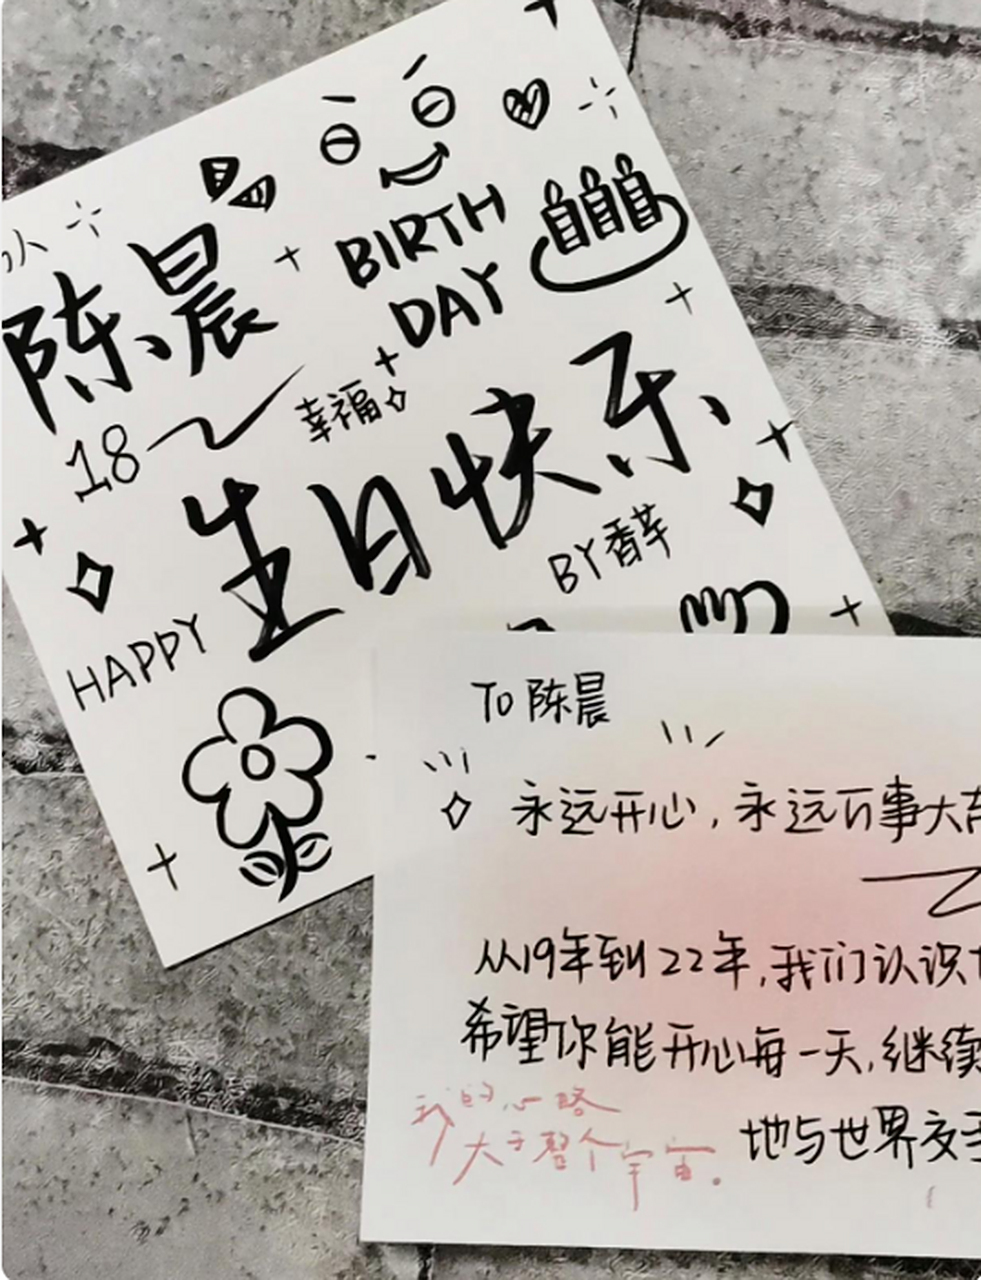 陈晨
BIRTH
DAY
18
幸福
生日快乐
BY香芋
HAPPY
TO 陈晨
永远开心，永远万事大吉
从19年到22年,我们认识
希望你能开心每一天,继续
地与世界交手
我的心路
大于整个宇宙。